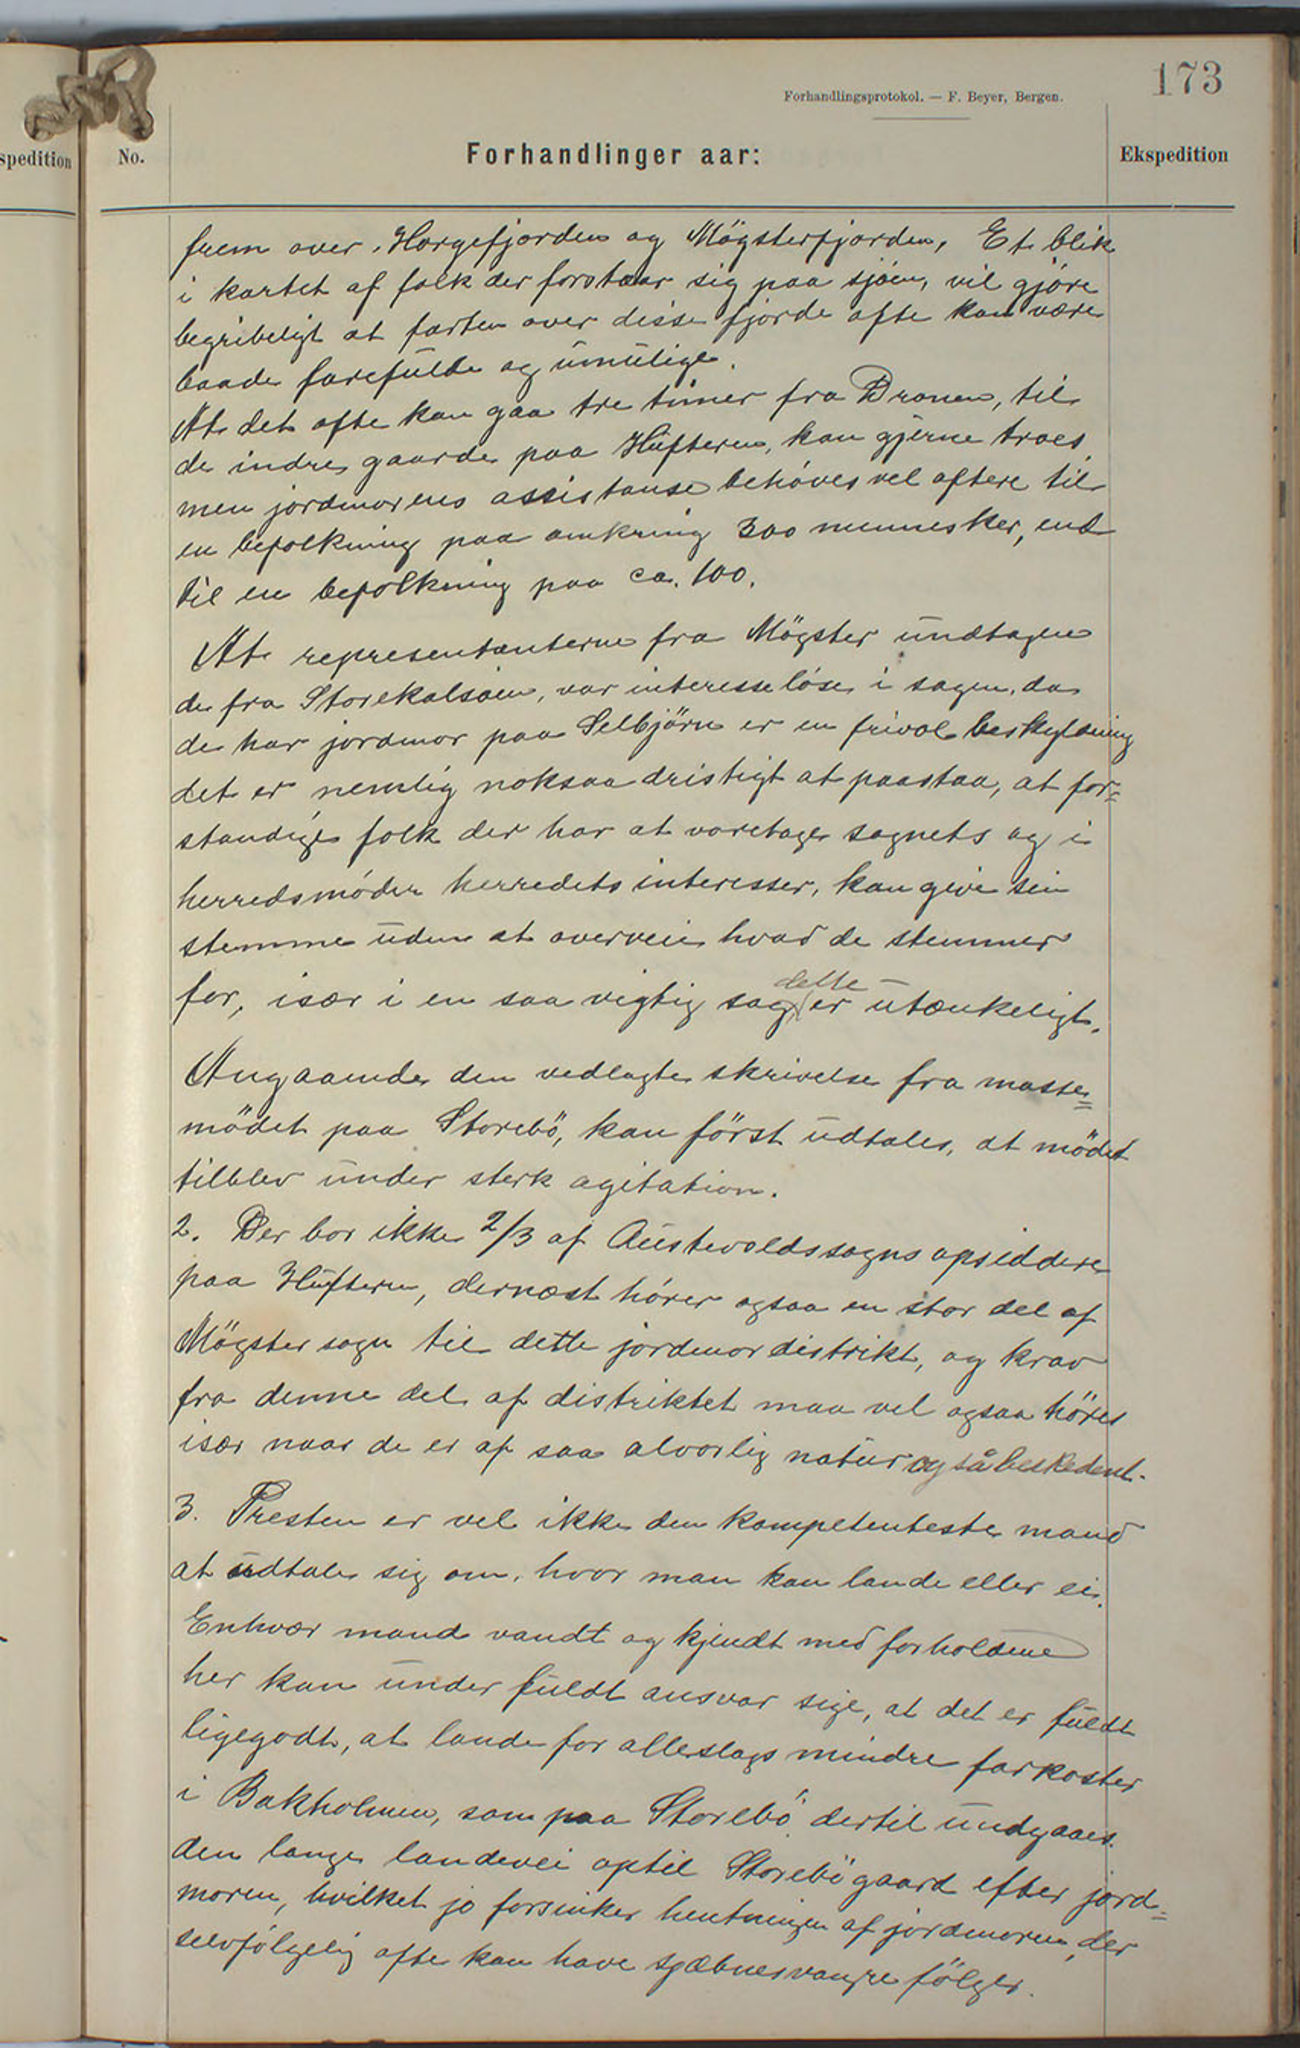 173
Forhandlingsprotokol. — F. Beyer, Bergen.
spedition
No.
Forhandlinger aar:
Ekspedition
frem over Horgefjorden og Mögsterfjorden, Et blik
i kartet af folk der forstaar sig paa sjöen, vil gjöre
begribeligt at farten over disse fjorde ofte kan være
baade farefulde og umulige.
At det ofte kan gaa tre timer fra Dronen, til
de indre gaarde paa Hufteren, kan gjerne troes
men jordmorens assistanse behöves vel oftere til
en befolkning paa omkring 300 mennesker, end
til en befolkning paa ca. 100.
At representanterne fra Mögster undtagen
de fra Storekalsöien, var interesselöse i sagen, da
de har jordmor paa Selbjörn er en frivol beskyldning
det er nemlig noksaa dristigt at paastaa, at for=
standige folk der har at varetage sognets og i
herredsmöder herredets interesser, kan give sin
stemme uden at overveie hvad de stemmer
for, især i en saa vigtig sag, dette er utænkeligt.
Angaaende den vedlagte skrivelse fra masse=
mödet paa Storebö, kan först udtales, at mödet
tilblev under sterk agitation.
2. Der bor ikke 2/3 af Austevoldssogns opsiddere
paa Huftern, dernæst hörer ogsaa en stor del af
Mögster sogn til dette jordmordistrikt, og krav
fra denne del af distriktet maa vel ogsaa höres
især naar de er af saa alvorlig natur og så beskedent.
3. Presten er vel ikke den kompetenteste mand
at udtale sig om, hvor man kan lande eller ei.
Enhver mand vandt og kjendt med forholdene
her kan under fuldt ansvar sige, at det er fuldt
ligegodt, at lande for alleslags mindre farkoster
i Bakholmen, som paa Storebö, dertil undgaaes
den lange landevei optil Storebögaard efter jord=
moren, hvilket jo forsinker hentningen af jordmoren, der
selvfölgelig ofte kan have sgæbnesvangre fölger.